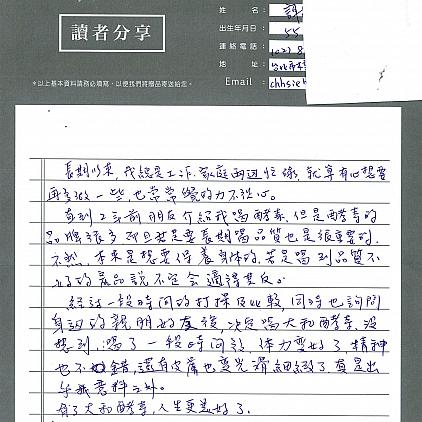 讀者分享
*以上基本資料請務必填寫，以便我們將贈品寄送給您。
姓 名：
出生年月日： 55
連絡電話： (02)8
地 址：
Email : chhsie
長期以來，我總是工作、家庭兩邊忙碌，就算有心想要
再多做一些也常常覺的力不從心。
直到2年前朋友介紹我喝酵素，但是酵素的
品牌很多而且若是要長期喝品質也是很重要的，
不然，本來是想要保養身體的，若是喝到品質不
好的產品說不定會適得其反。
經過一段時間的打探及比較，同時也詢問
身邊的親朋好友後，決定喝大和酵素，沒
想到，喝了一段時間於，體力變好了，精神
也不錯，還有皮膚也變光滑細緻了真是出
乎我意料之外。
有了大和酵素，人生更美好了。